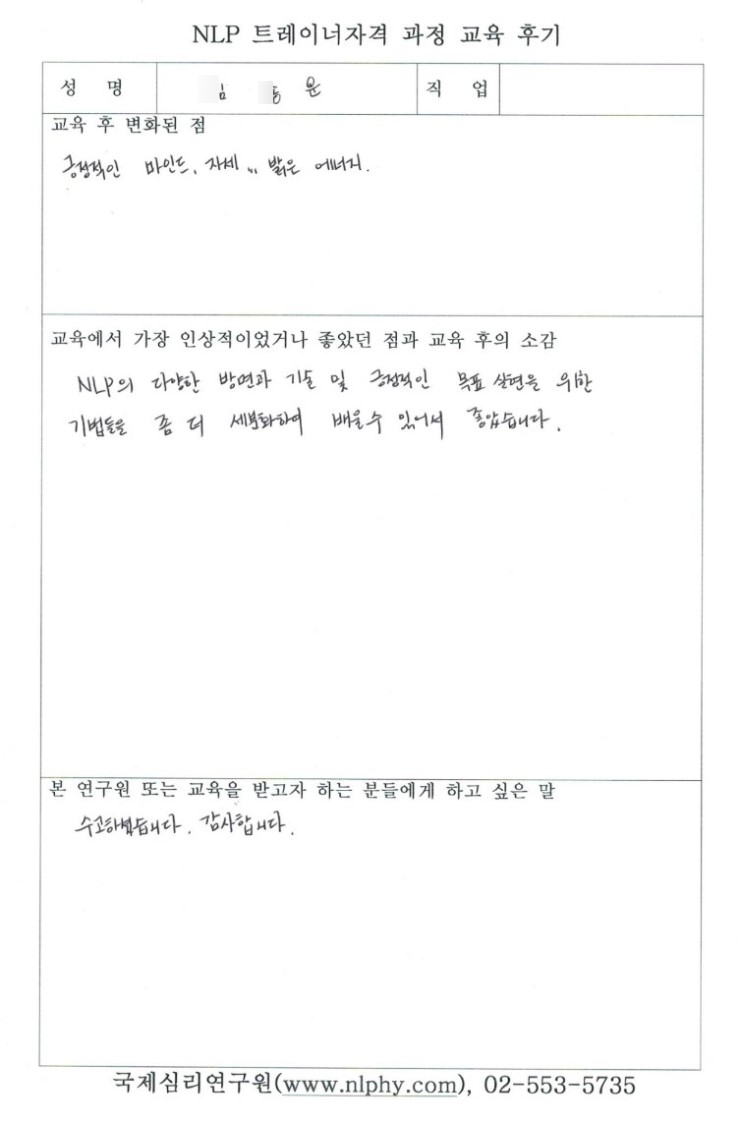 NLP 트레이너자격 과정 교육 후기
성 명 윤 직 업
교육 후 변화된 점
긍정적인 마인드, 자세 〃 밝은 에너지.
교육에서 가장 인상적이었거나 좋았던 점과 교육 후의 소감
NLP의 다양한 방면과 기술 및 긍정적인 목표 실현을 위한
기법들을 좀 더 세분화하여 배울수 있어서 좋았습니다.
본 연구원 또는 교육을 받고자 하는 분들에게 하고 싶은 말
수고하셨습니다. 감사합니다.
국제심리연구원(www.nlphy.com), 02-553-5735